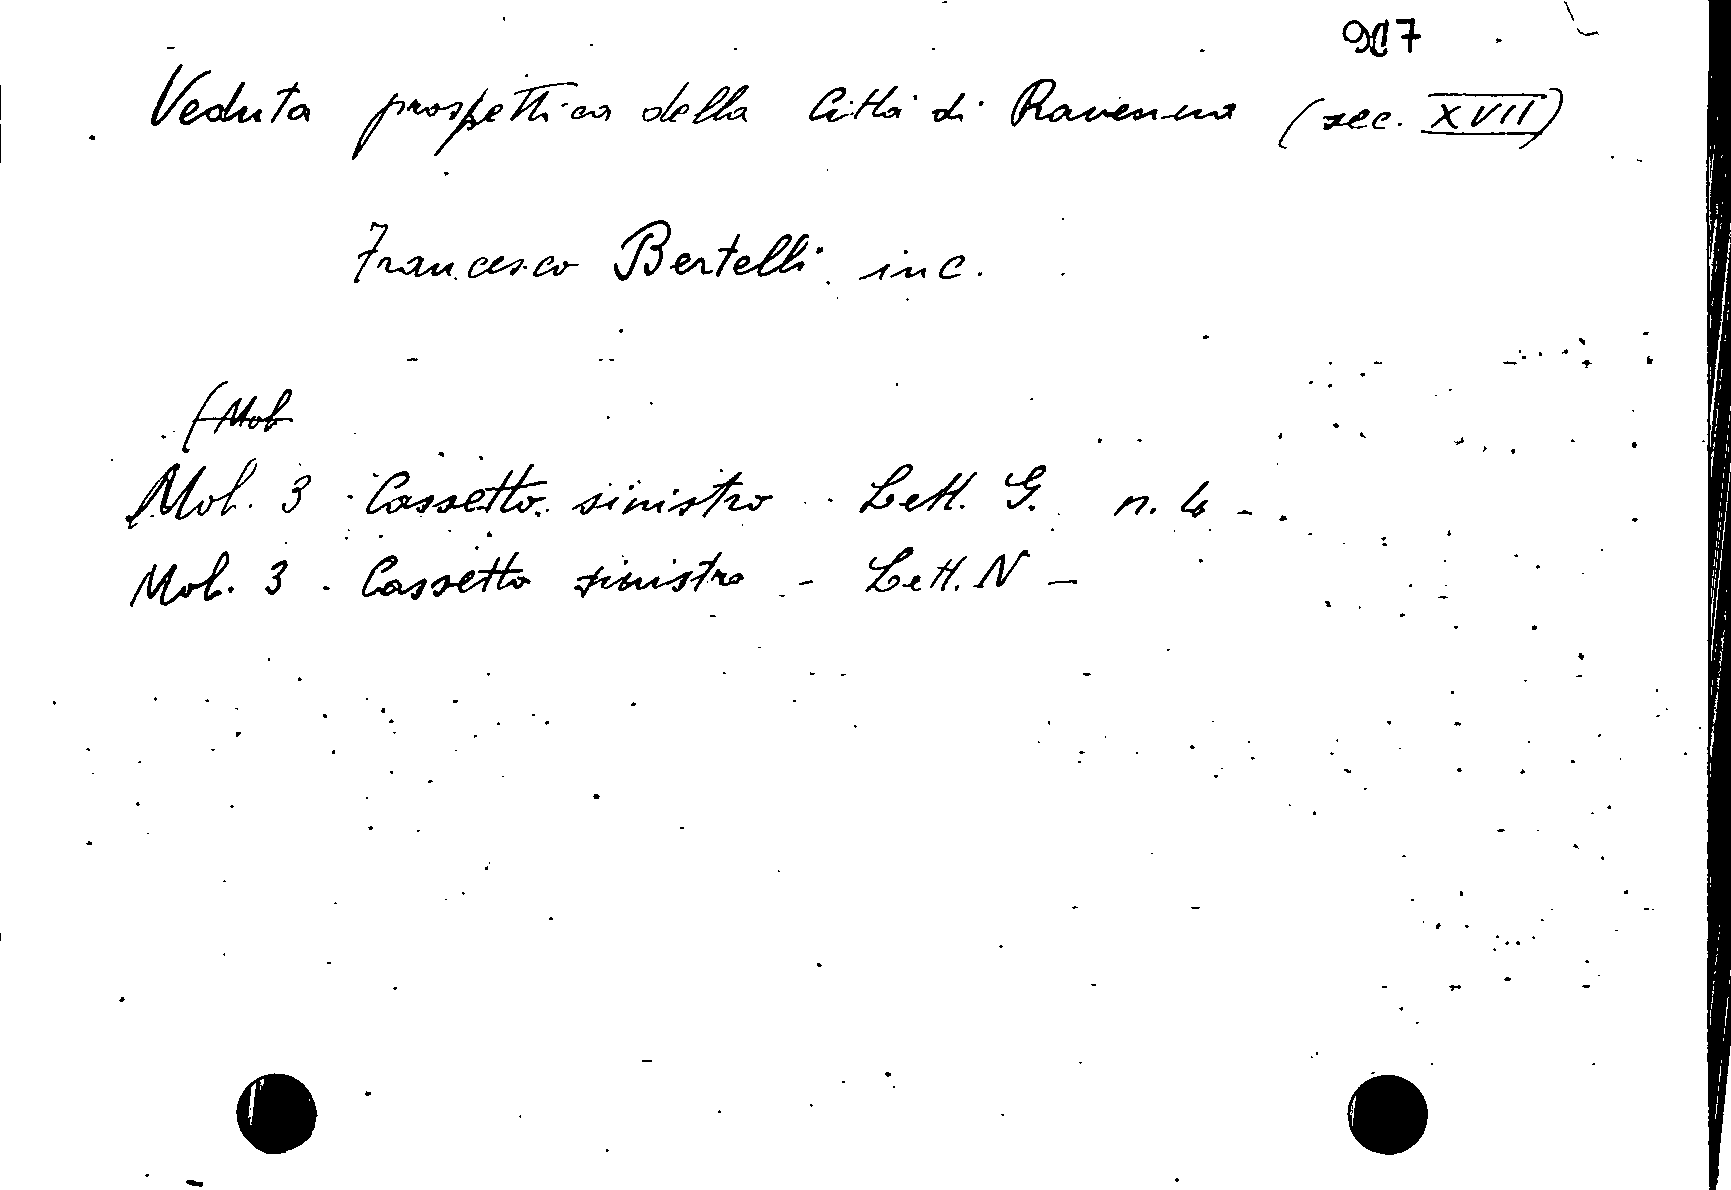 907
Veduta prospettica della Città di Ravenna (sec. XVII)
Francesco Bertelli inc.
(Mob
Mob. 3 - Cassetto sinistro - Lett. G. n. 4 -
Mob. 3 - Cassetto sinistro - Lett. N -